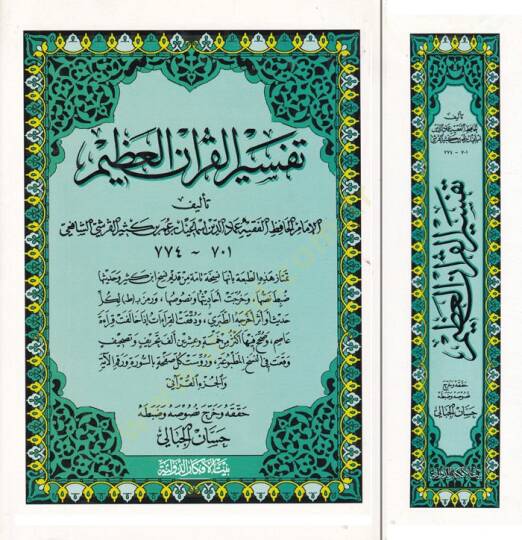 تفسير القرآن العظيم
تأليف
الإمام الحافظ الفقيه عماد الدين إسماعيل بن عمر بن كثير القرشي الشافعي
٧٠١ - ٧٧٤
تمتاز هذه الطبعة بأنها نسخة تامة من
ضبط نصها، وخرجت أحاديثها ونصوصها، ورمز لكل
حديث وأثر الطبري، ووثقت القراءات إذا خالفت قراءة
عاصم، وصحح فيها أكثر من خمسة وعشرين ألف تحريف وتصحيف
وقعت في النسخ المطبوعة، كل صفحة بالسورة ورقم الآية
والجزء القرآني
حققه وخرج نصوصه وضبطه
حسان الجبالي
بيت الأفكار الدولية
تأليف
الحافظ الفقيه عماد الدين
إسماعيل بن عمر بن كثير القرشي
٧٠١ - ٧٧٤
تفسير القرآن العظيم
حققه وخرج
نصوصه وضبطه
حسان الجبالي
بيت الأفكار الدولية